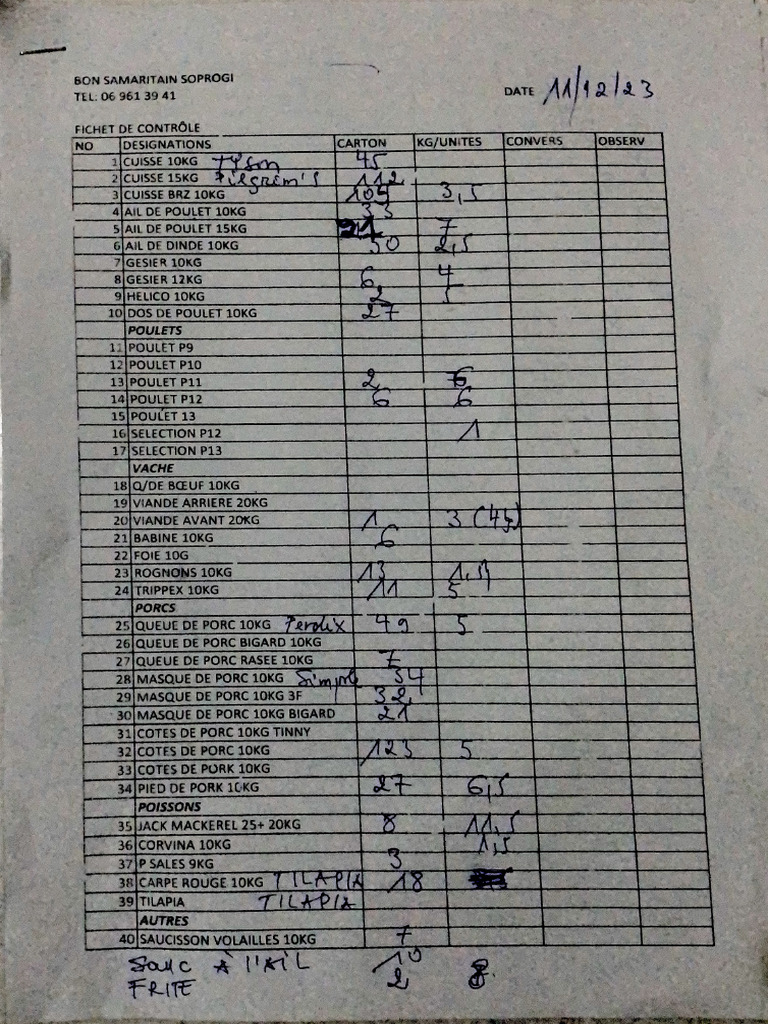 BON SAMARITAIN SOPROGI
TEL: 06 961 39 41
DATE 11/12/23
FICHET DE CONTRÔLE
NO DESIGNATIONS CARTON KG/UNITES CONVERS OBSERV
1 CUISSE 10KG Tyson 45
2 CUISSE 15KG Pilgrim's 112
3 CUISSE BRZ 10KG 105 3,5
4 AIL DE POULET 10KG 33
5 AIL DE POULET 15KG 7
6 AIL DE DINDE 10KG 50 2,5
7 GESIER 10KG
8 GESIER 12KG 6 4
9 HELICO 10KG 2 5
10 DOS DE POULET 10KG 27
POULETS
11 POULET P9
12 POULET P10
13 POULET P11 2 6
14 POULET P12 6 6
15 POULET 13
16 SELECTION P12 1
17 SELECTION P13
VACHE
18 Q/DE BŒUF 10KG
19 VIANDE ARRIERE 20KG
20 VIANDE AVANT 20KG 1 3
21 BABINE 10KG 6
22 FOIE 10G
23 ROGNONS 10KG 13
24 TRIPPEX 10KG 11 5
PORCS
25 QUEUE DE PORC 10KG Perdix 49 5
26 QUEUE DE PORC BIGARD 10KG
27 QUEUE DE PORC RASEE 10KG 7
28 MASQUE DE PORC 10KG Simple 54
29 MASQUE DE PORC 10KG 3F 32
30 MASQUE DE PORC 10KG BIGARD 21
31 COTES DE PORC 10KG TINNY
32 COTES DE PORC 10KG 123 5
33 COTES DE PORK 10KG
34 PIED DE PORK 10KG 27 6,5
POISSONS
35 JACK MACKEREL 25+ 20KG 8 11,5
36 CORVINA 10KG 1,5
37 P SALES 9KG 3
38 CARPE ROUGE 10KG TILAPIA 18
39 TILAPIA TILAPIA
AUTRES
40 SAUCISSON VOLAILLES 10KG 7
Sauc À l'AIL 10
FRITE 2 8